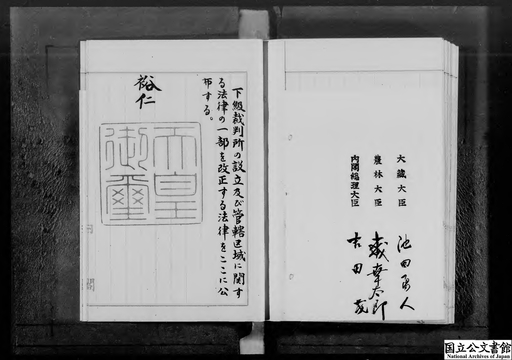 大藏大臣 池田勇人
農林大臣
内閣総理大臣 吉田茂
下級裁判所の設立及び管轄区域に関す
る法律の一部を改正する法律をここに公
布する。
裕仁
天皇御璽
国立公文書館
National Archives of Japan